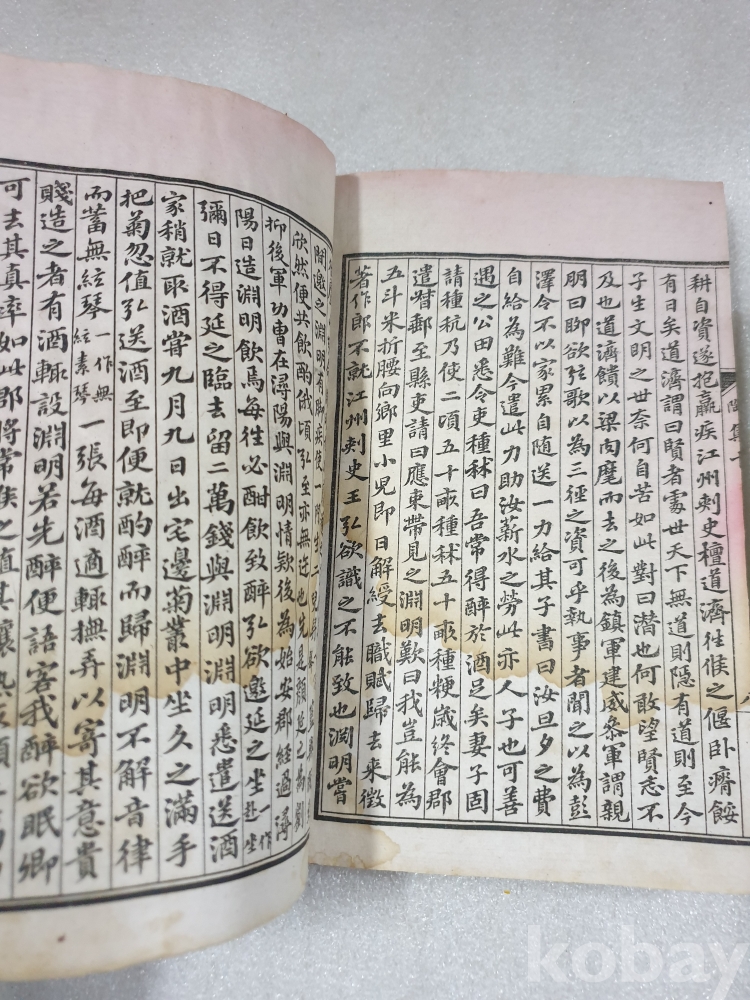 耕自資遂抱羸疾江州刺史檀道濟徃候之偃卧瘠餒
有日矣道濟謂曰賢者處世天下無道則隱有道則至今
子生文明之世柰何自苦如此對曰潛也何敢望賢志不
及也道濟饋以梁肉麾而去之後為鎮軍建威叅軍謂親
朋曰聊欲弦歌以為三徑之資可乎執事者聞之以為彭
澤令不以家累自隨送一力給其子書曰汝旦夕之費
自給為難今遣此力助汝薪水之勞此亦人子也可善
遇之公田悉令吏種秫曰吾常得醉於酒足矣妻子固
請種秔乃使二頃五十畝種秫五十畝種粳歲終會郡
遣督郵至縣吏請曰應束帶見之淵明歎曰我豈能為
五斗米折腰向鄉里小兒即日解綬去職賦歸去來徵
著作郎不就江州刺史王弘欲識之不能致也淵明嘗
間邀之淵明有脚疾使一門生二兒
欣然便共飲酌俄頃弘至亦無迕也先是顏延之為劉
柳後軍功曹在潯陽與淵明情欵後為始安郡經過潯
陽日造淵明飲焉每徃必酣飲致醉弘欲邀延之坐一作赴坐
彌日不得延之臨去留二萬錢與淵明淵明悉遣送酒
家稍就取酒嘗九月九日出宅邊菊叢中坐久之滿手
把菊忽值弘送酒至即便就酌醉而歸淵明不解音律
而蓄無絃琴一作無絃素琴一張每酒適輒撫弄以寄其意貴
賤造之者有酒輒設淵明若先醉便語客我醉欲眠卿
可去其真率如此郡將常候之值其釀熟
陶集
kobay